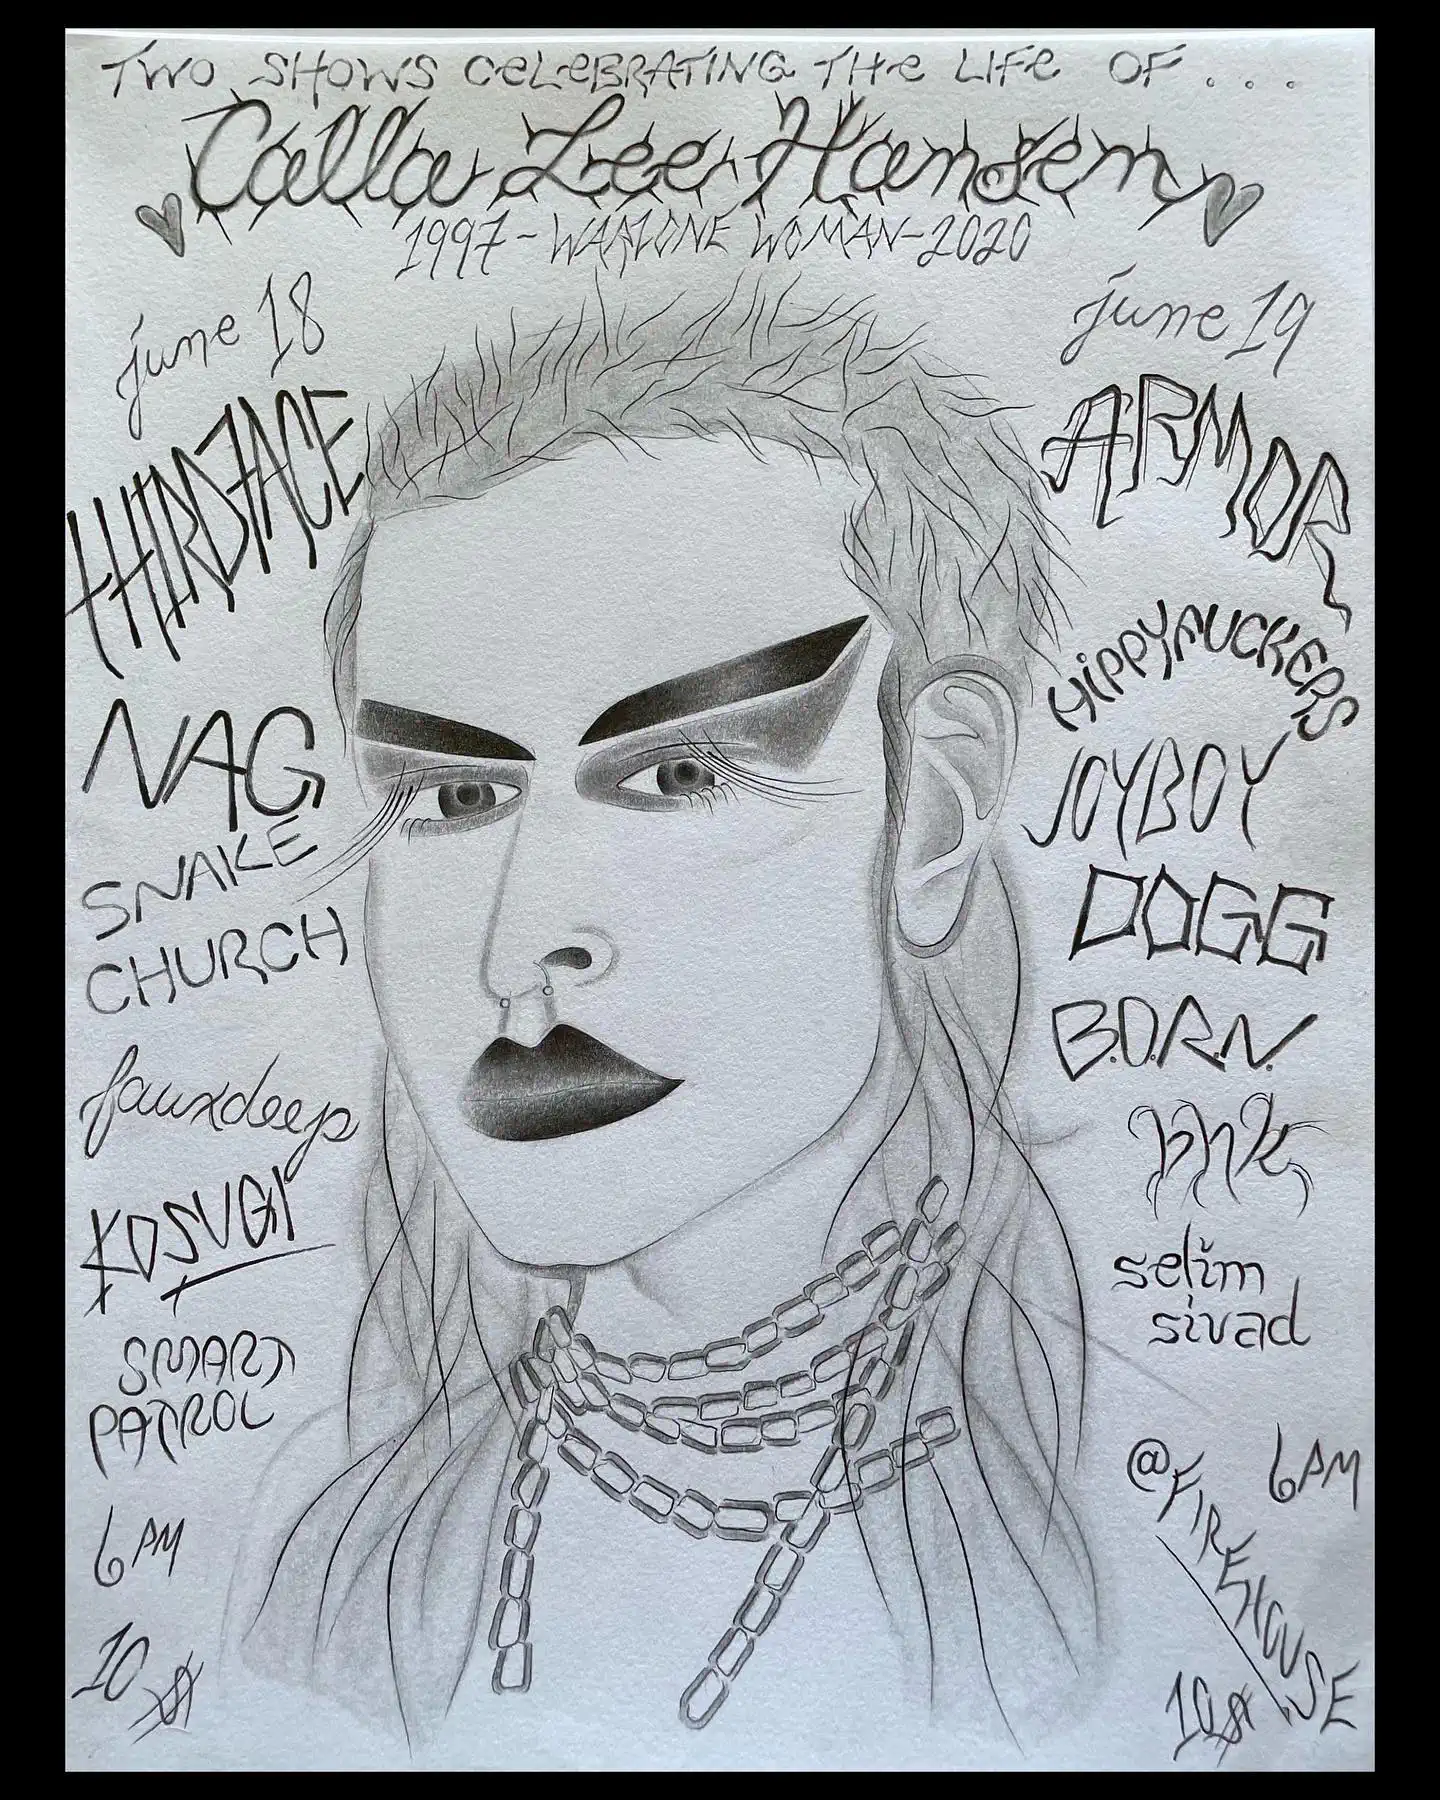 TWO SHOWS CELEBRATING THE LIFE OF...
Calla Lee Hansen
1997-WARZONE WOMAN-2020
june 18
THIRDFACE
NAG
SNAKE
CHURCH
fauxdeep
KOSUGI
SMART
PATROL
6 PM
10$
june 19
ARMOR
HIPPYFUCKERS
JOYBOY
DOGG
B.O.R.N.
bhk
selim
sivad
@FIREHOUSE
6PM
10$